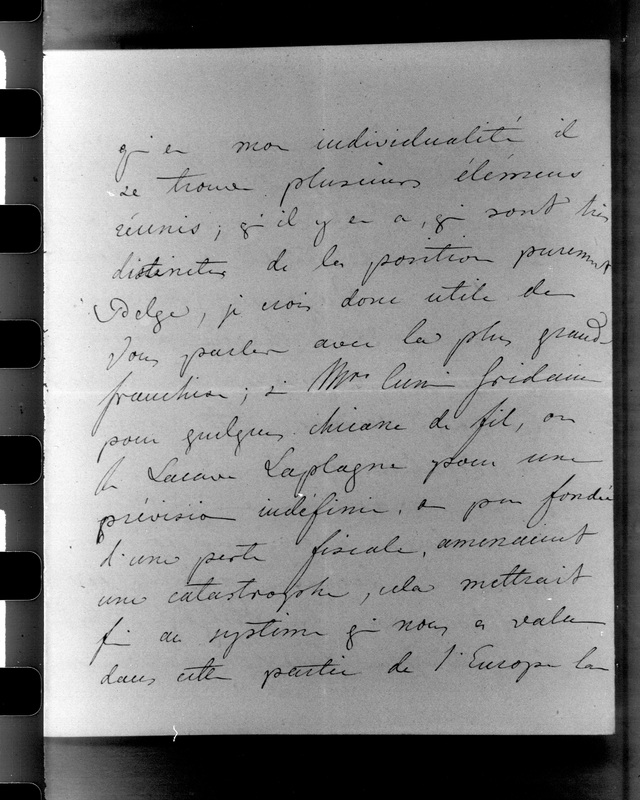 qi en mon individualité il
se trouve plusieurs élémens
réunis; q'il y en a, qi sont très
distinctes de la position purement
Belge, je crois donc utile de
Vous parler avec la plus grande
franchise; si Mrs Cunin Gridaine
pour quelques chicane de fil, ou
Lacave Laplagne pour une
prévision indéfinie, a peu fondée
d'une perte fiscale, amenaient
une catastrophe, cela mettrait
fin au système qi nous a valu
dans cette partie de l'Europe la